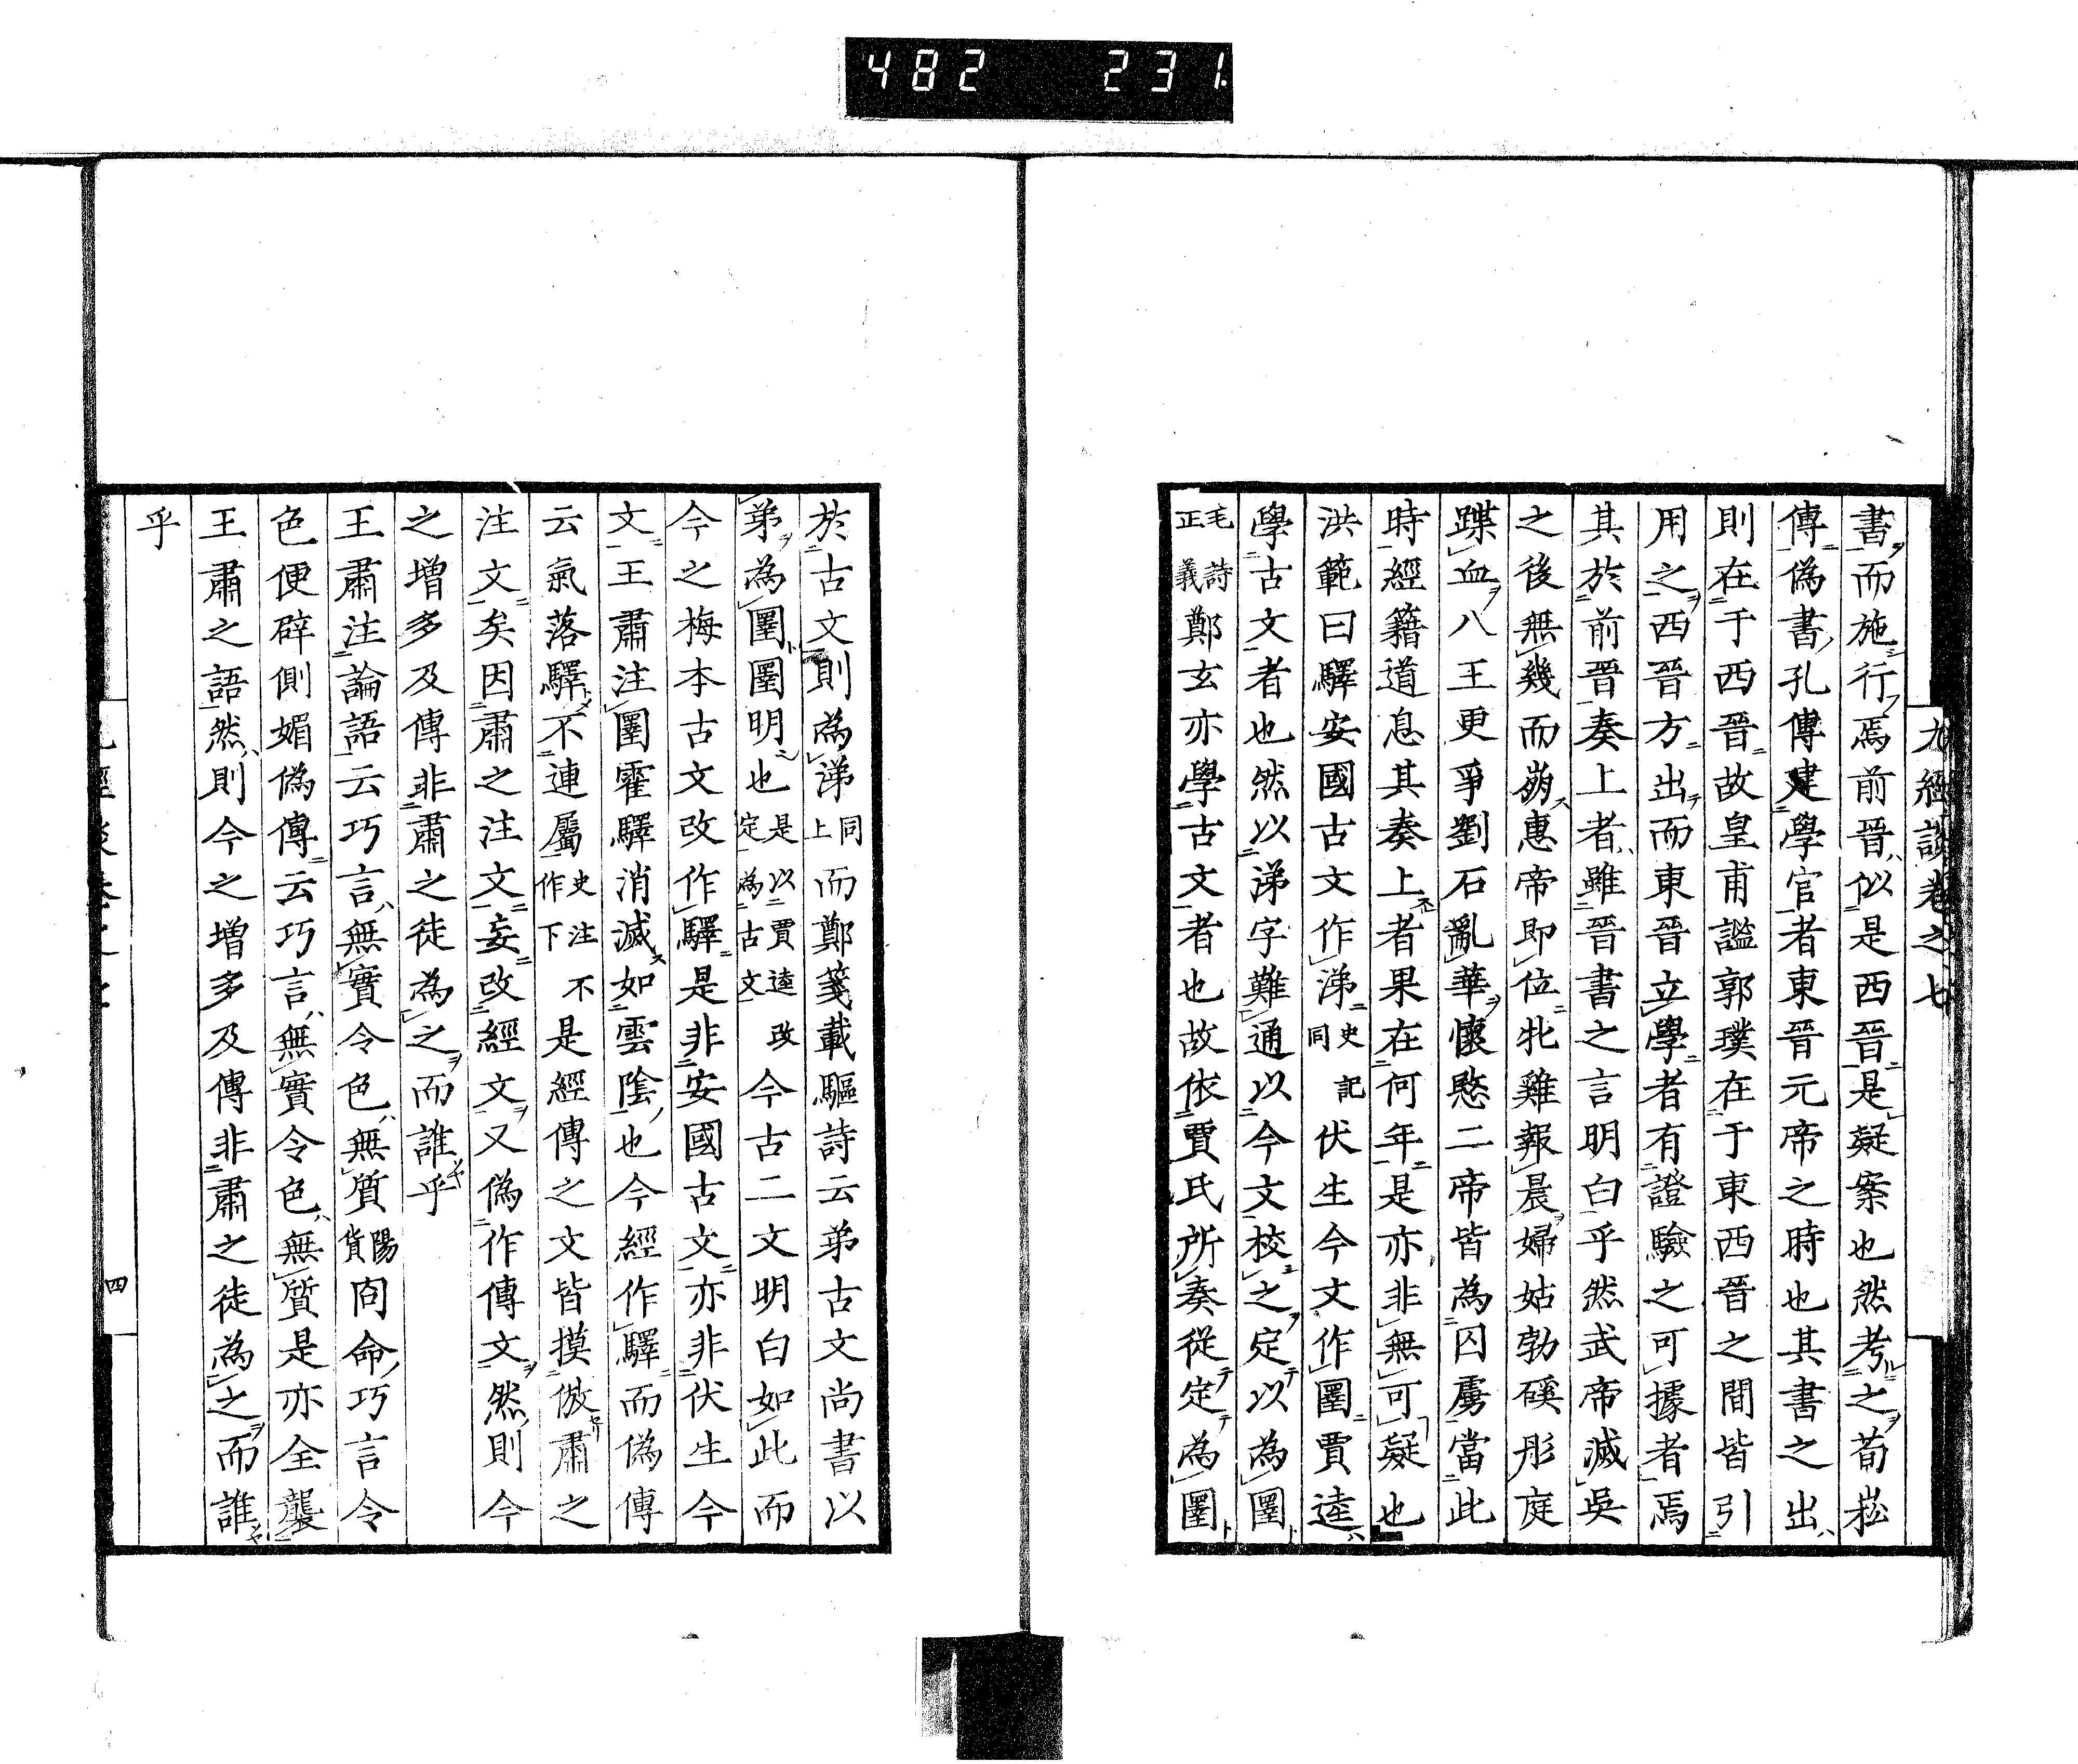 482 231
九經談卷之七
書而施行焉前晉似是西晉是疑案也然考之荀崧
傳偽書孔傳建學官者東晉元帝之時也其書之出
則在于西晉故皇甫謐郭璞在于東西晉之間皆引
用之西晉方出而東晉立學者有證驗之可據者焉
其於前晉奏上者雖晉書之言明白乎然武帝滅吳
之後無幾而崩惠帝即位牝雞報晨婦姑勃磎彤庭
蹀血八王更爭劉石亂華懷愍二帝皆為囚虜當此
時經籍道息其奏上者果在何年是亦非無可疑也
洪範曰驛安國古文作涕史記同伏生今文作圛賈逵
學古文者也然以涕字難通以今文校之定以為圛
毛詩正義鄭玄亦學古文者也故依賈氏所奏從定為圛
於古文則為涕同上而鄭箋載驅詩云弟古文尚書以
弟為圛圛明也是以賈逵改定為古文今古二文明白如此而
今之梅本古文改作驛是非安國古文亦非伏生今
文王肅注圛霍驛消滅如雲陰也今經作驛而偽傳
云氣落驛不連屬史注不作下是經傳之文皆摸倣肅之
注文矣因肅之注文妄改經文又偽作傳文然則今
之增多及傳非肅之徒為之而誰乎
王肅注論語云巧言無實令色無質陽貨冏命巧言令
色便辟側媚偽傳云巧言無實令色無質是亦全襲
王肅之語然則今之增多及傳非肅之徒為之而誰
乎
四